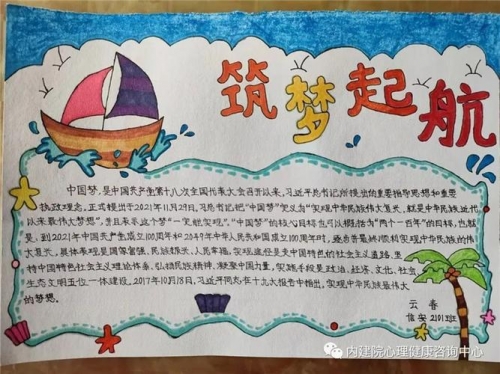 筑梦起航
中国梦,是中国共产党第十八次全国代表大会召开以来,习近平总书记所提出的重要指导思想和重要
执政理念,正式提出于2021年11月29日。习总书记把"中国梦"定义为"实现中华民族伟大复兴,就是中华民族近代
以来最伟大梦想",并且表示这个梦"一定能实现"。"中国梦"的核心目标也可以概括为"两个一百年"的目标,也就
是:到2021年中国共产党成立100周年和2049年中华人民共和国成立100周年时,逐步并最终顺利实现中华民族的伟
大复兴,具体表现是国家富强、民族振兴、人民幸福,实现途径是走中国特色的社会主义道路、坚
持中国特色社会主义理论体系、弘扬民族精神、凝聚中国力量,实施手段是政治、经济、文化、社会、
生态文明五位一体建设。2017年10月18日,习近平同志在十九大报告中指出,实现中华民族伟大
的梦想。
云香
信安2101班
内建院心理健康咨询中心